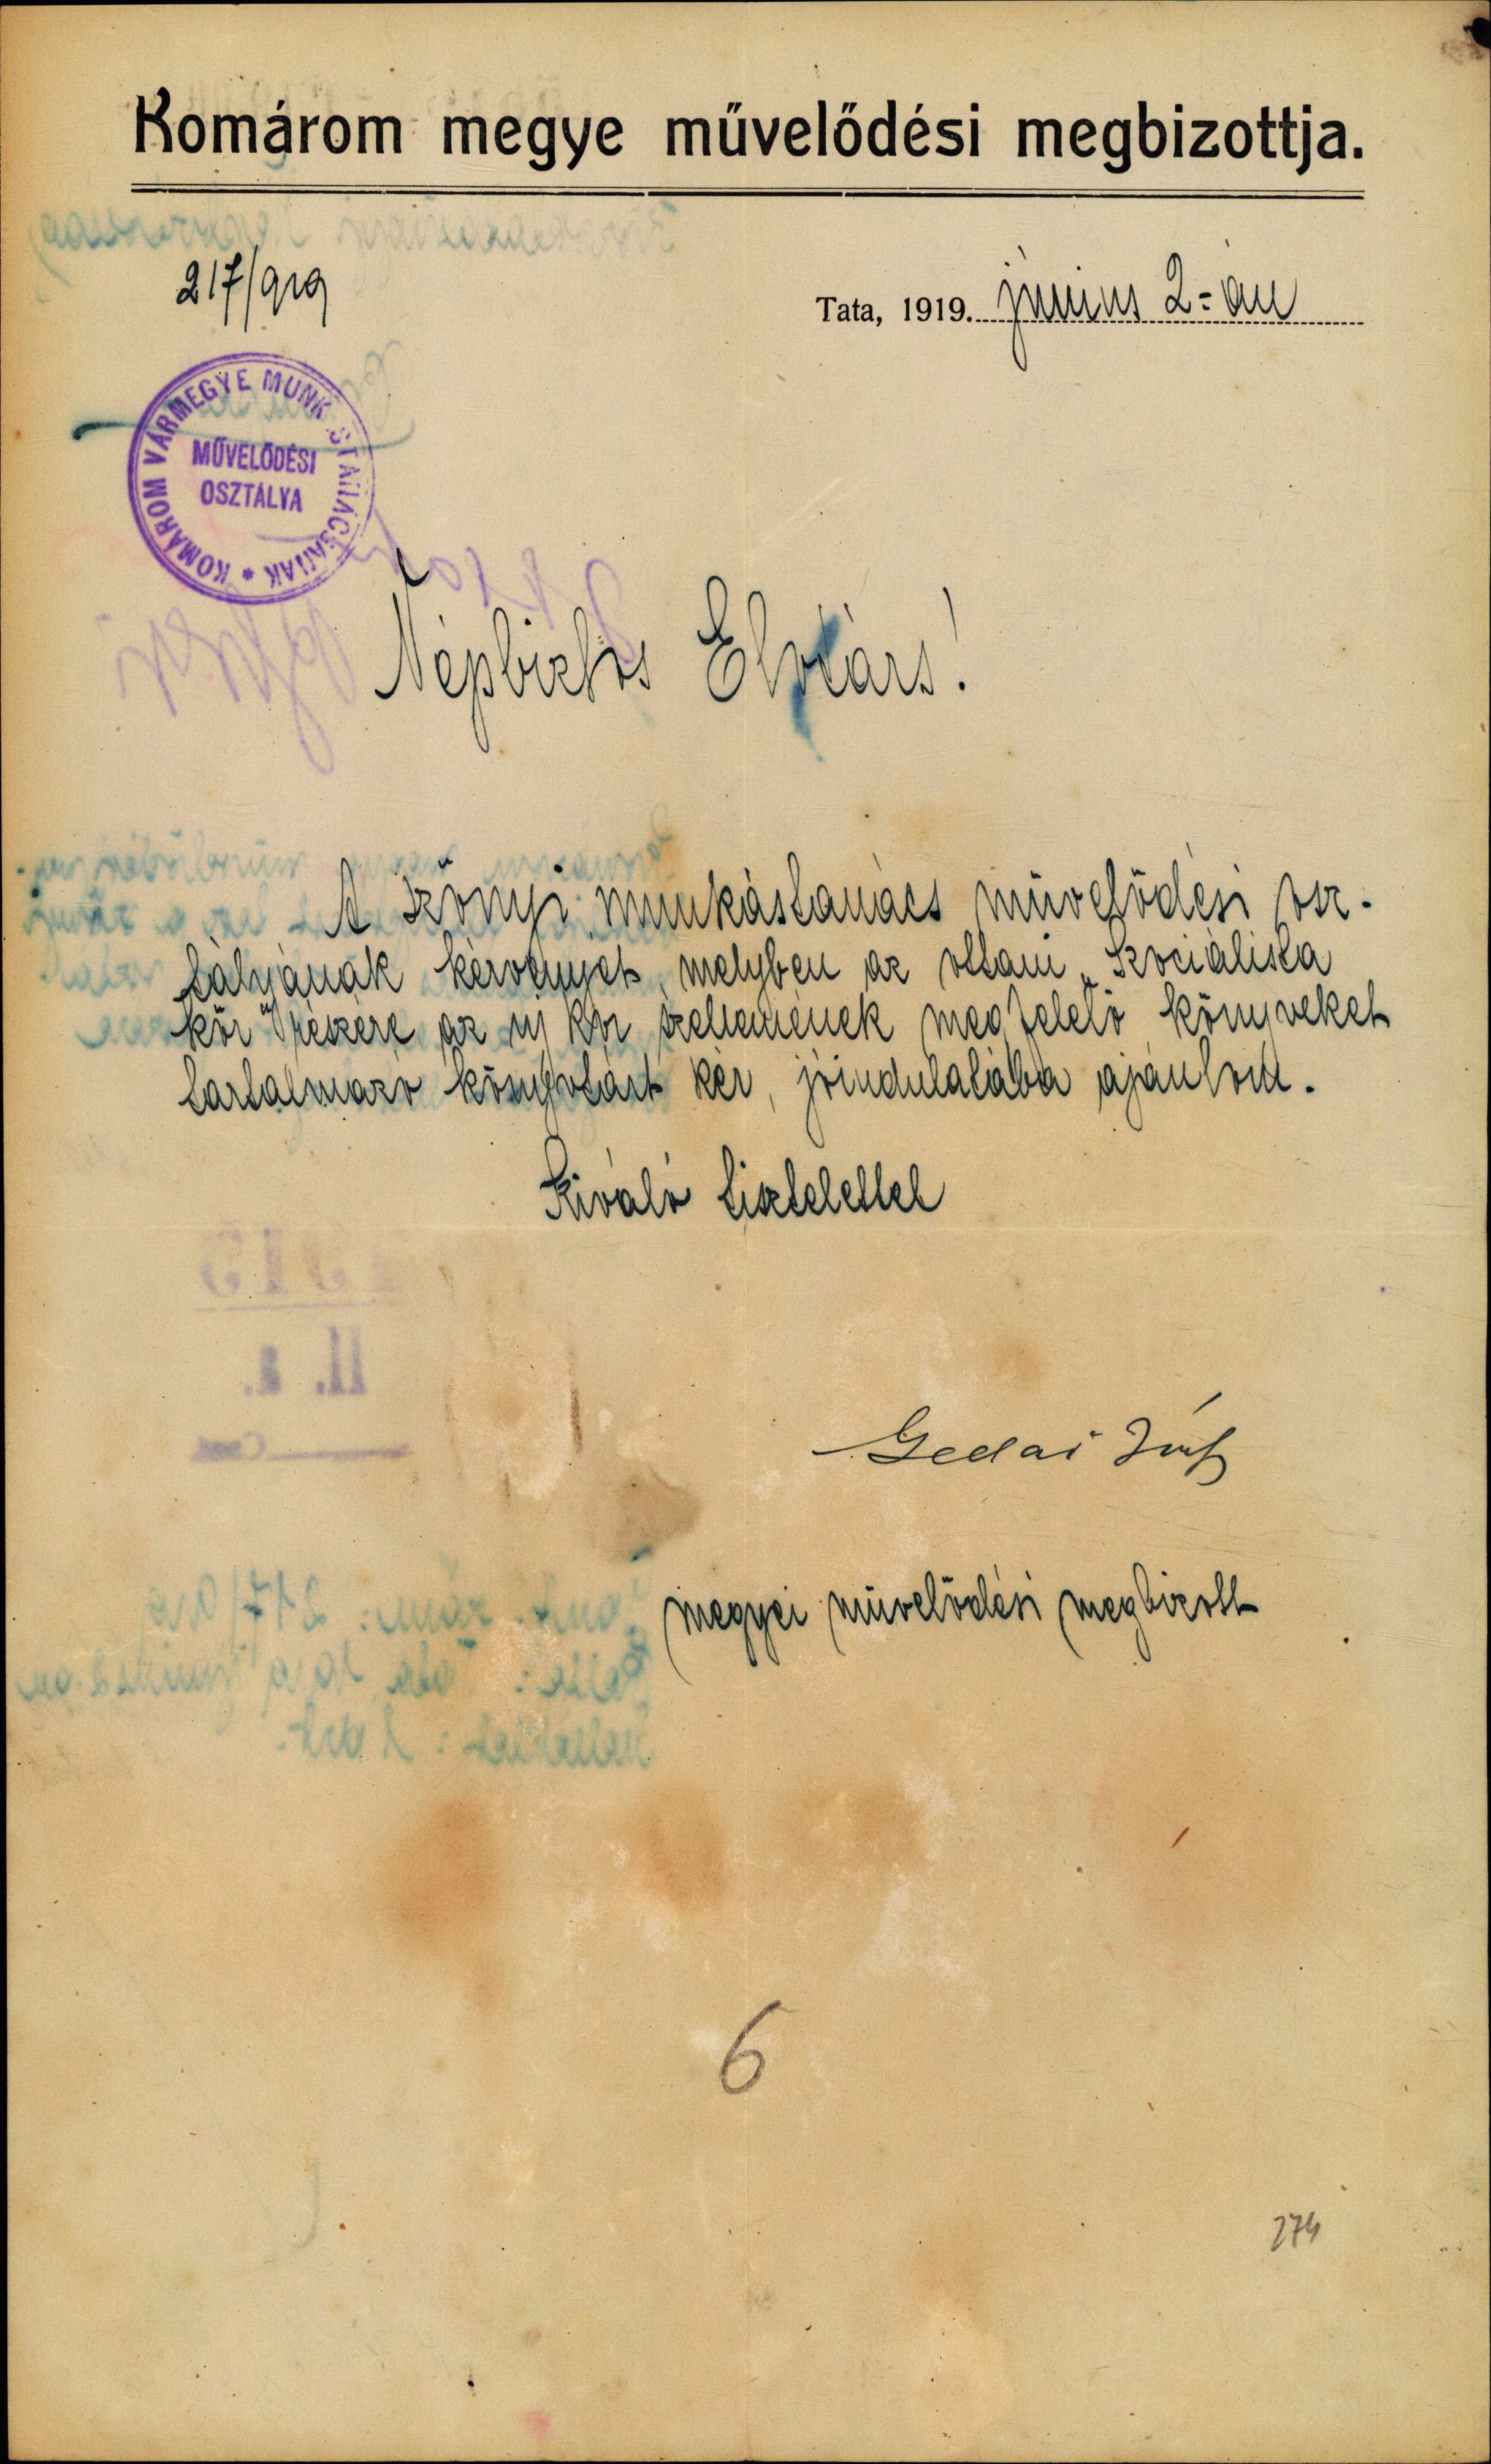 Komárom megye művelődési megbizottja.
217/919
Tata, 1919. június 2-án
KOMÁROM VÁRMEGYE MUNKÁSTANÁCSÁNAK *
MŰVELŐDÉSI
OSZTÁLYA
Népbiztos Elvtárs!
A szőnyi munkástanács művelődési osz-
tályának kérvényét, melyben az ottani „Szociálista
kör" részére az új kor szellemének megfelelő könyveket
tartalmazó könyvtárt kér, jóindulatába ajánlom.
Kiváló tisztelettel
Gedai
megyei művelődési megbizott
6
274